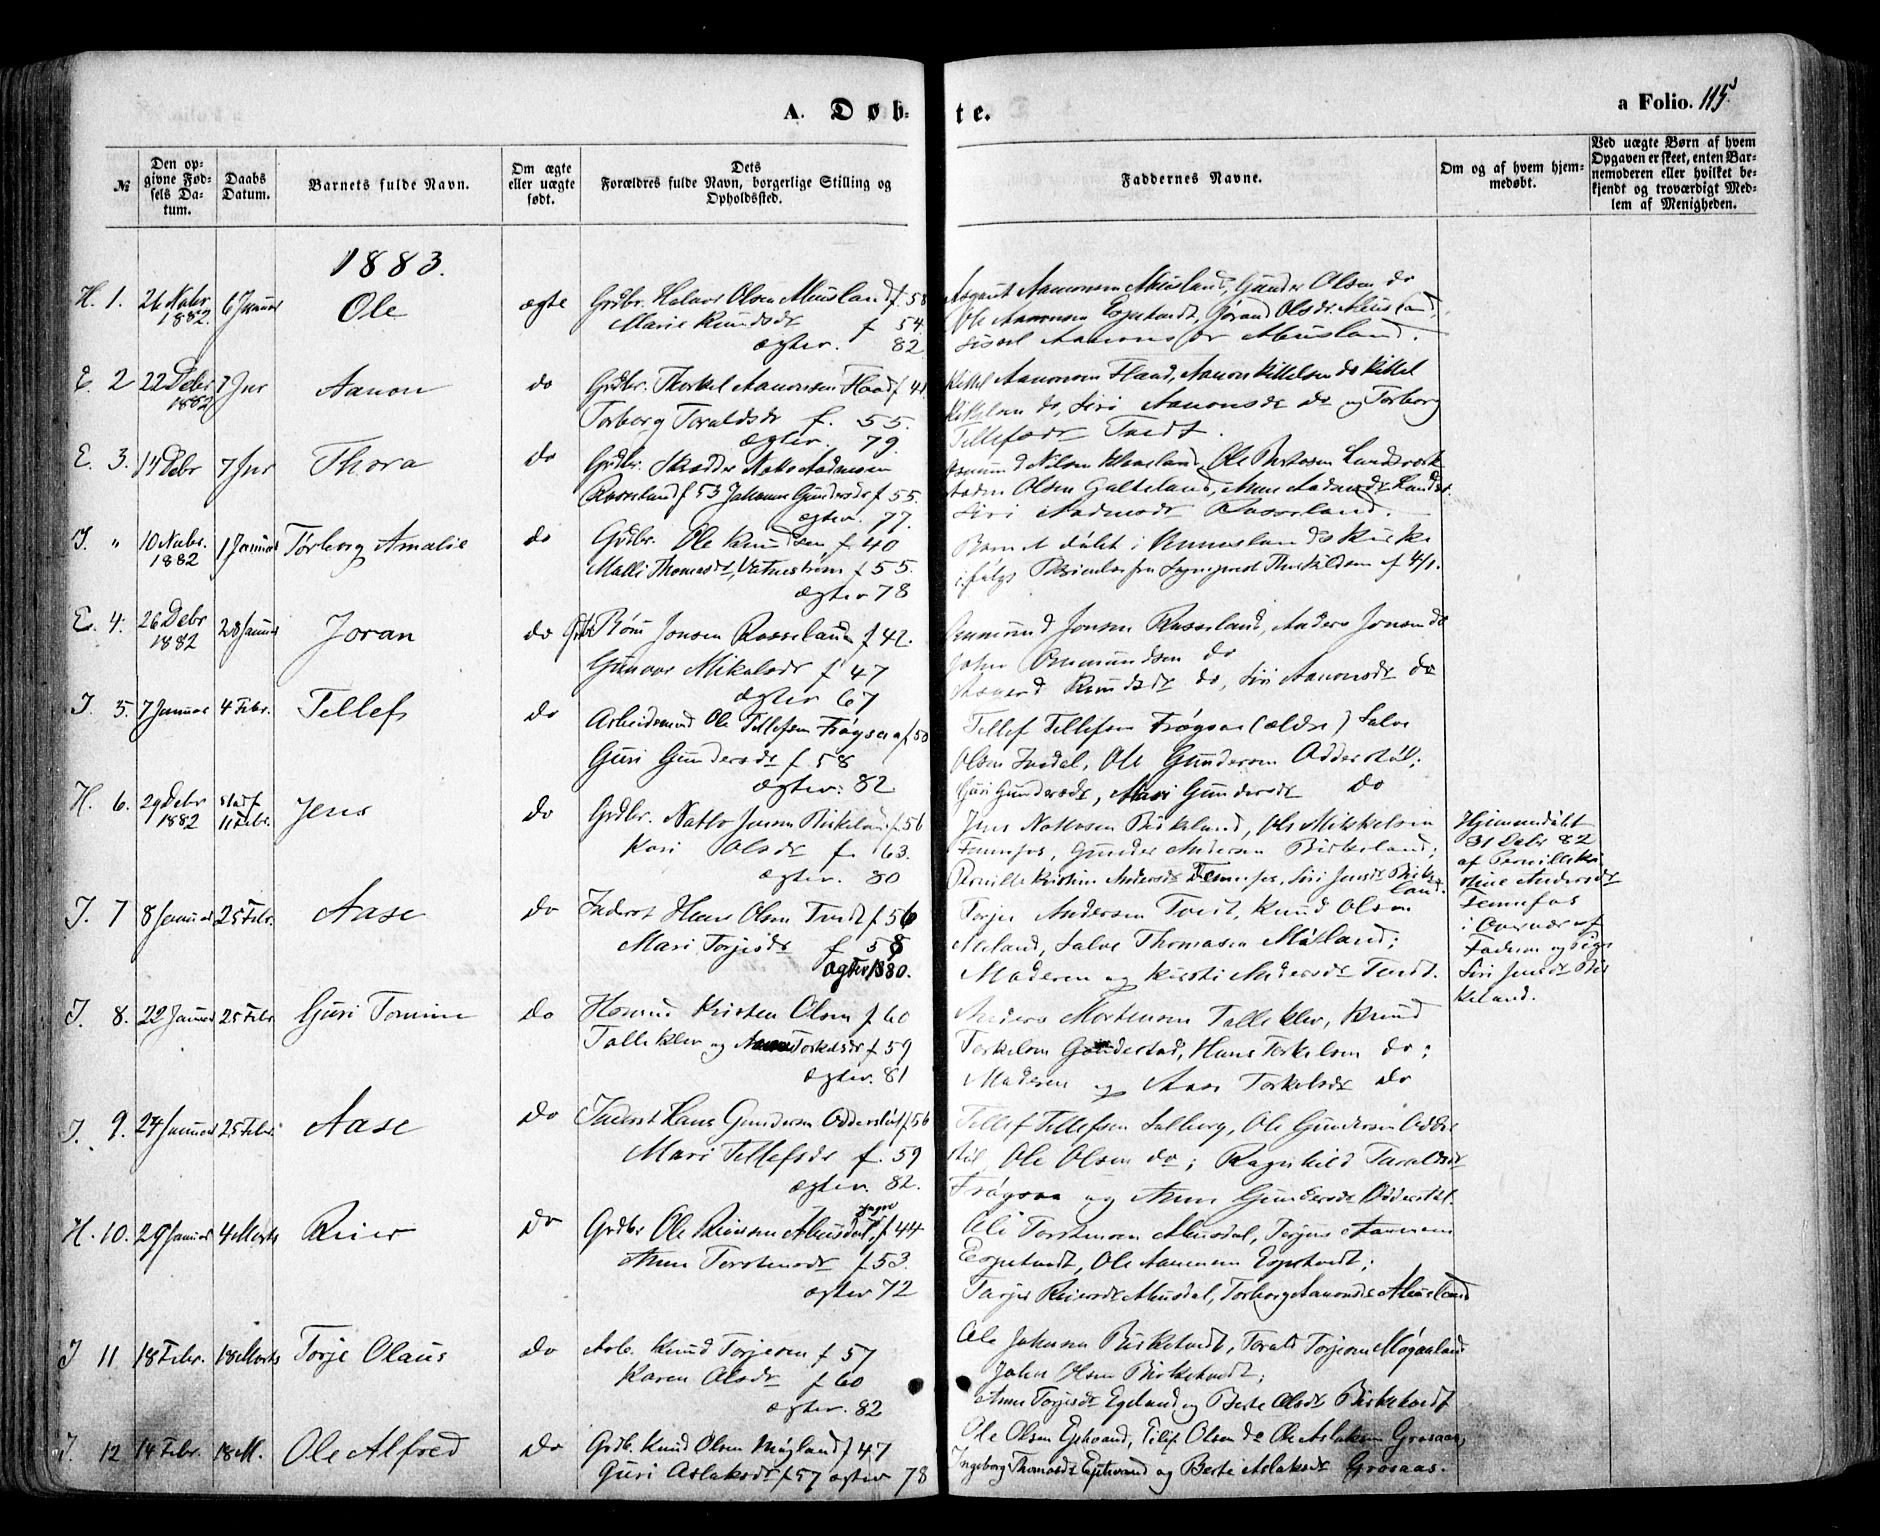 A. Døb-te.
a Folio. 115
№
Den op-
givne Fød-
sels Da-
tum.
Daabs
Datum.
Barnets fulde Navn.
Om ægte
eller uægte
født.
Dets
Forældres fulde Navn, borgerlige Stilling og
Opholdssted.
Faddernes Navne.
Om og af hvem hjem-
medøbt.
Ved uægte Børn af hvem
Opgaven er skeet, enten Bar-
nemoderen eller hvilket be-
kjendt og troværdigt Med-
lem af Menigheden.
1883.
H. 1. 26 Nvbr 1882. 6 Januar Ole ægte Grdbr. Halvor Olsen Abusland f. 58
Marie Knudsdr f 54.
ægtev. 82
Aanonsen Abusland, Gunder Olsen do
Ole Aanonsen Espetvedt, Jørand Olsdr. Abusland,
Sissel Aanonsdr Abusland.
E. 2 22 Debr 1882 7 Jnr Aanon do Grdbr. Thorkel Aanonsen Flaa f 41
Torborg Taraldsdr f. 55.
ægtev. 79.
Kittel Aanonsen Flaad, Aanon Kittelsen do Kittel
Kittelsen do, Siri Aanonsdr do og Torborg
Tellefsdr Tvedt.
E. 3. 17 Debr 7 Jnr Thora do Grdbr. Skrædder Natto Aadnesen
Rosseland f 53 Johanne Gundersdr f 55.
ægtev. 77.
Nilsen Klaaseland, Ole Bertosen Landsværk
Aadne Olsen Galteland, Anne Aadnesdr Lands.
Siri Aadnesdr Rosseland.
I. " 10 Nvbr. 1882 1 Januar Torborg Amalie do Grdbr. Ole Knudsen f 40
Malli Thomasdr, Vatnestrøm f 55.
ægtev 78
Barnet døbt i Kirke
ifølge fra Sogneprest Thorkildsen af 4/1.
E. 4. 26 Debr 1882 28 Januar Joran do Grdbr Jonsen Rosseland f 42.
Gunvor Mikalsdr f 47
ægtev 67
Jonsen Rosseland, Anders Jonsen do
John Omundsen do
Knudsdr do, Siri Aanonsdr do
I. 5. 7 Januar 4 Febr. Tellef do Arbeidsmand Ole Tellefsen Frøysaa f 50
Guri Gundersdr f. 58
ægtev: 82
Tellef Tellefsen Frøysaa (ældre) Salve
Olsen Ivedal, Ole Gundersen Odderstøl;
Guri Gundersdr, Mari Gundersdr do
H. 6. 29 Debr 1882 11 Febr. Jens do Grdbr. Natto Jensen Birkeland f. 56
Kari Olsdr f. 63.
ægtev. 80
Jens Nattosen Birkeland, Ole Mikkelsen
Fennefos, Gunder Andersen Birkeland;
Pernille Kristine Andersdr Fennefos, Siri Jensdr Birke
land.
Hjemmedøbt
31 Debr 82
af Pernille Kri
stine Andersdr
Fennefos
i Overvær af
Faderen og Pige
Siri Jensdr Bir
keland.
I. 7 8 Januar 25 Febr. Aase do Inderst Hans Olsen Tvedt f 56
Mari Torjusdr f 58
ægtev. 1880.
Torjus Andersen Tvedt, Knud Olsen
Salve Thomasen Møland;
Moderen og Kirsti Andersdr Tvedt.
I. 8. 22 Januar 25 Febr. Guri Tomine do Husmd Kristen Olsen f 60
Talleklev og Torkelsdr f 59
ægtev. 81
Anders Mortensen Talleklev, Knud
Torkelsen, Hans Torkelsen do;
Moderen og Aase Torkelsdr do
I. 9. 24 Januar 25 Febr. Aase do Inderst Hans Gundersen Odderstøl f 56
Mari Tellefsdr f. 59
ægtev. 82.
Tellef Tellefsen Solberg, Ole Gundersen Odder
støl, Ole Olsen do; Ragnhild Taraldsdr
Frøysaa og Anne Gundersdr Odderstøl.
H. 10. 29 Januar 4 Marts Reier do Grdbr Ole Reiersen Abusdal f 44
Anne Torstensdr f 53.
ægtev 72
Ole Torstensen Abusdal, Torjus Aanonsen
Espetvedt, Ole Aanonsen Espetvedt;
Torjer Reiersdr Abusdal, Torborg Aanonsdr Abusland
I 11 18 Febr. 18 Marts Torje Olaus do Arb. Knud Torjesen f 57
Karen Olsdr f 60
ægtev. 82
Ole Johnsen Birketvedt, Tarald Torjesen
John Olsen Birketvedt;
Anne Torjesdr Egeland og Berte Olsdr Birketvedt
I. 12 14 Febr. 18 M. Ole Alfred do Grdb. Knud Olsen Møgland f 47
Guri Aslaksdr f. 57 ægtev 78
Ole Olsen, Tellef Olsen do Ole Aslaksen Grosaas,
Ingeborg Thomasdr og Berte Aslaksdr Grosaas.